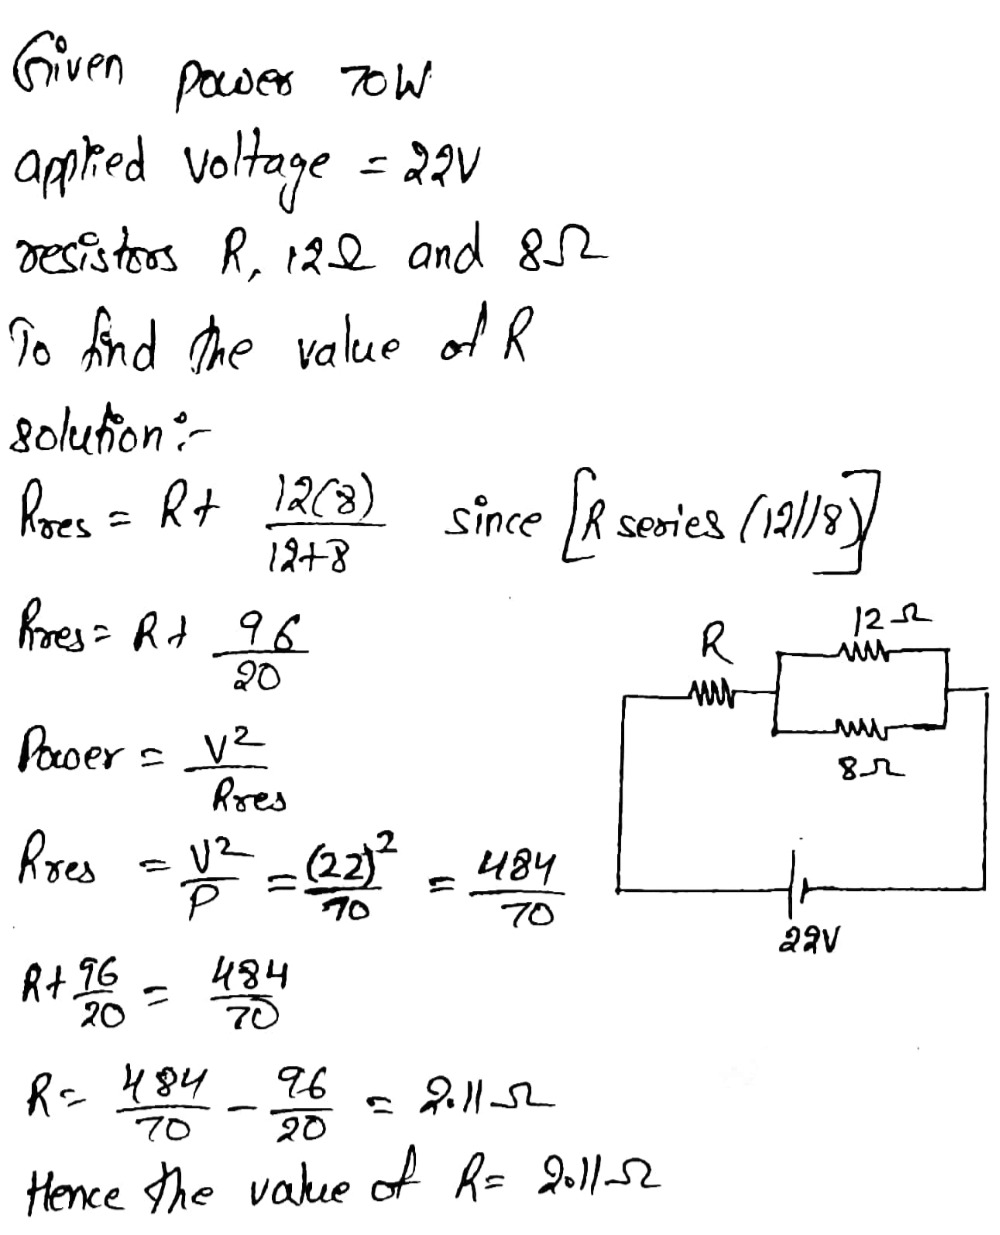 Given power 70W
applied voltage = 22V
resistors R, 12Ω and 8Ω
To find the value of R
solution :-
Rres = R + 12(8)/12+8 since [R series (12//8)]
Rres = R + 96/20
Power = V²/Rres
Rres = V²/P = (22)²/70 = 484/70
R + 96/20 = 484/70
R = 484/70 - 96/20 = 2.11Ω
Hence the value of R = 2.11Ω
R
12Ω
8Ω
22V